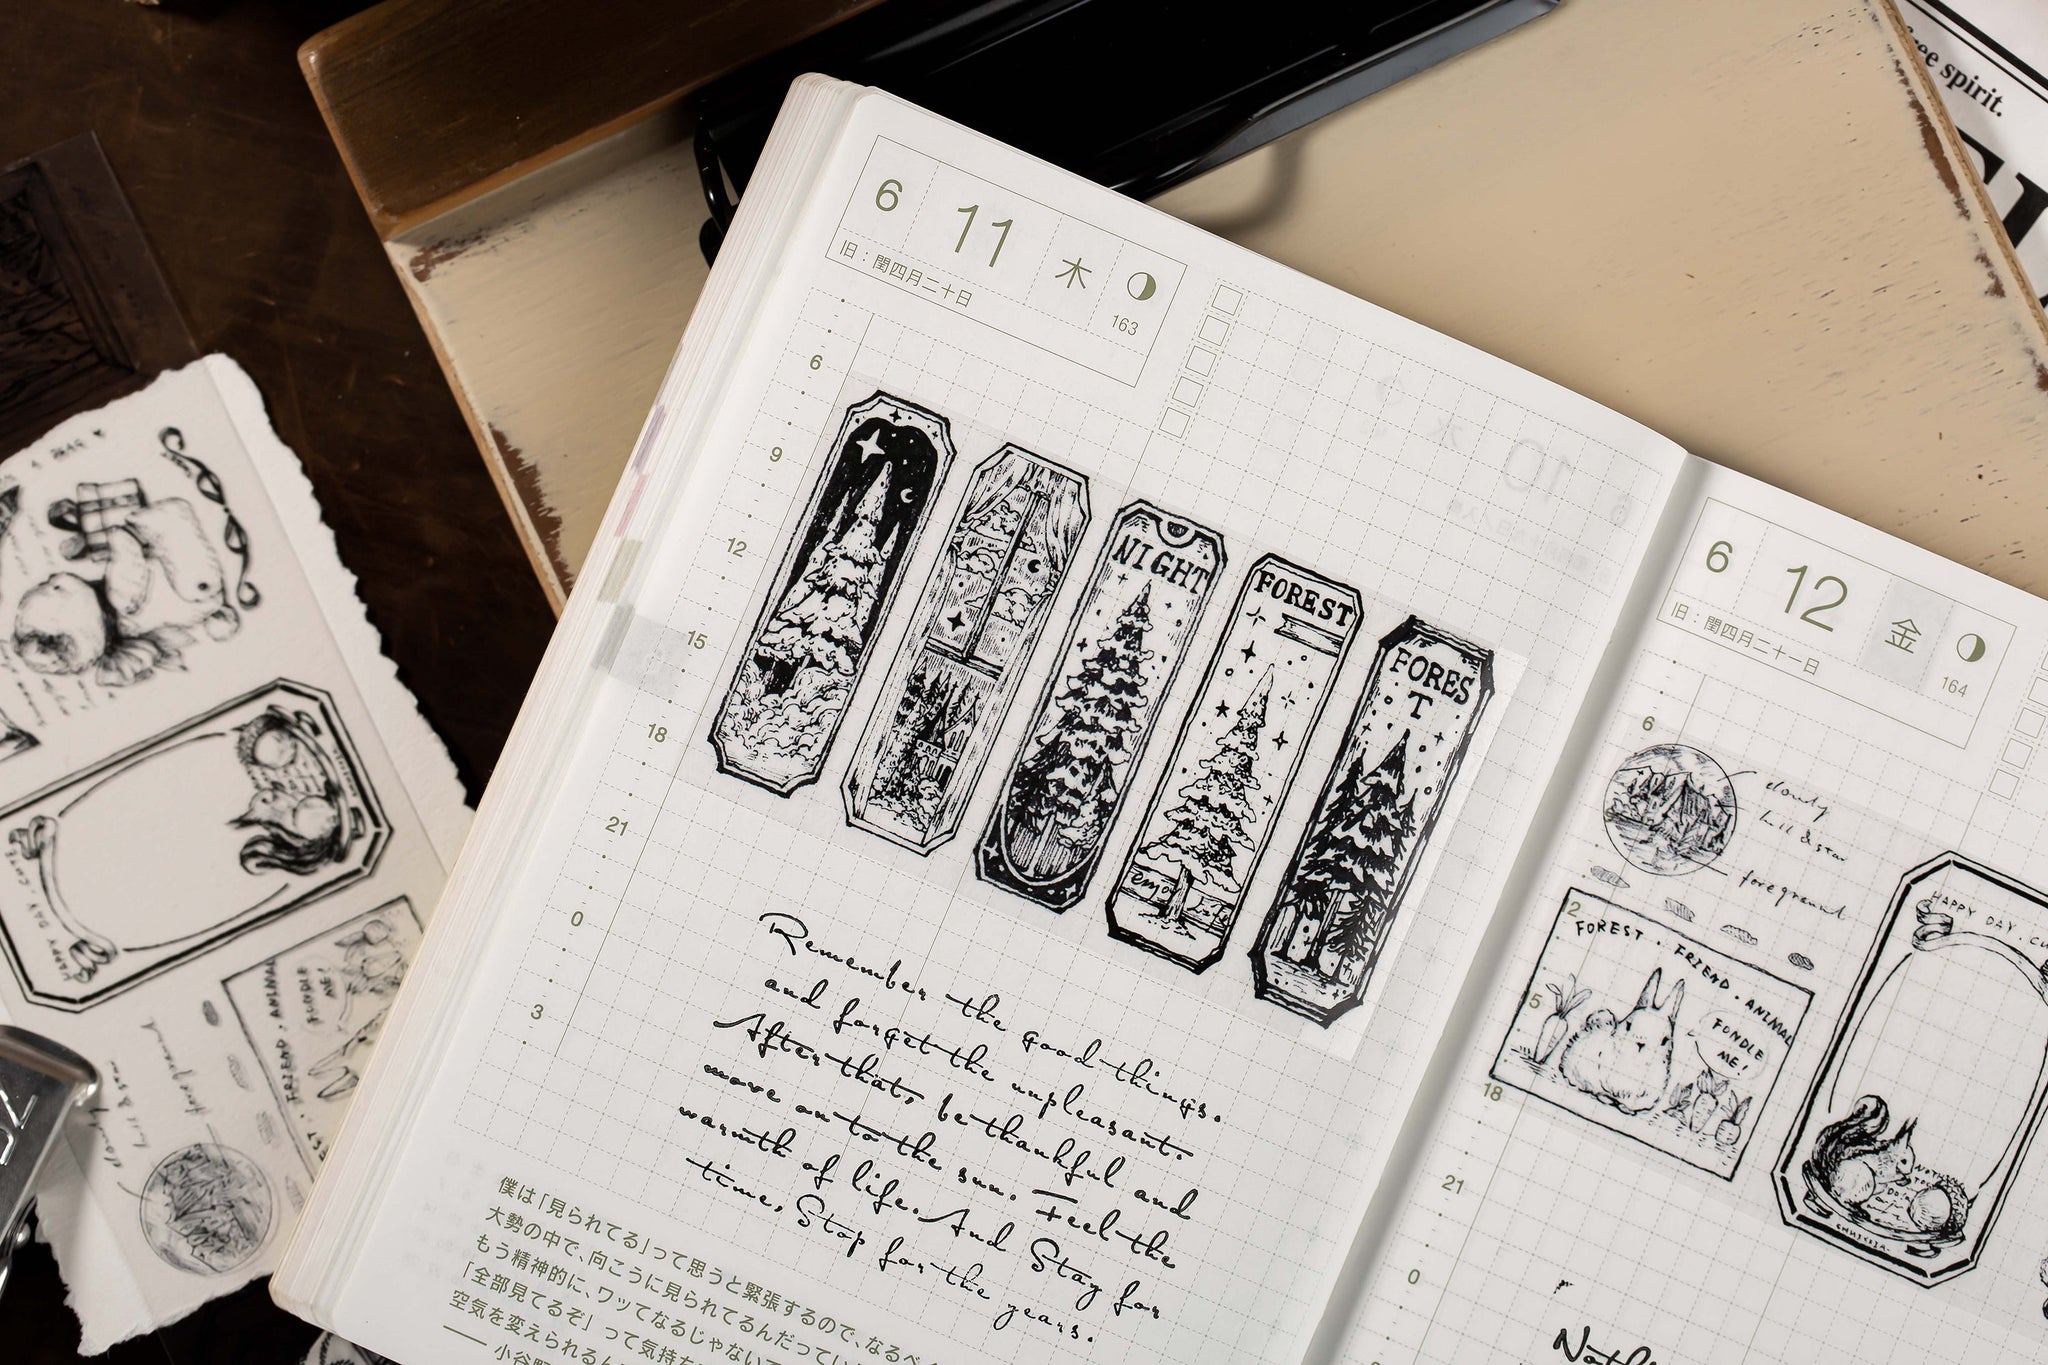 free spirit.
6 11 木
旧：閏四月二十日
163
6
9
12
15
18
21
0
3
NIGHT
FOREST
FORES
T
Remember the good things.
and forget the unpleasant.
After that, be thankful and
move on to the sun. Feel the
warmth of life. And Stay for
time, Stop for the years.
僕は「見られてる」って思うと緊張するので、なるべく
大勢の中で、向こうに見られてるんだってい
もう精神的に、ワッてなるじゃないで
「全部見てるぞ」って気持ち
空気を変えられるん
6 12 金
旧：閏四月二十一日
164
6
cloudy
hill & star
foreground
12
FOREST . FRIEND . ANIMAL
FONDLE
ME!
15
18
21
0
HAPPY DAY.
HAPPY DAY.
FOREST . FRIEND . ANIMAL
FONDLE
ME!
cloudy
hill & star
foreground